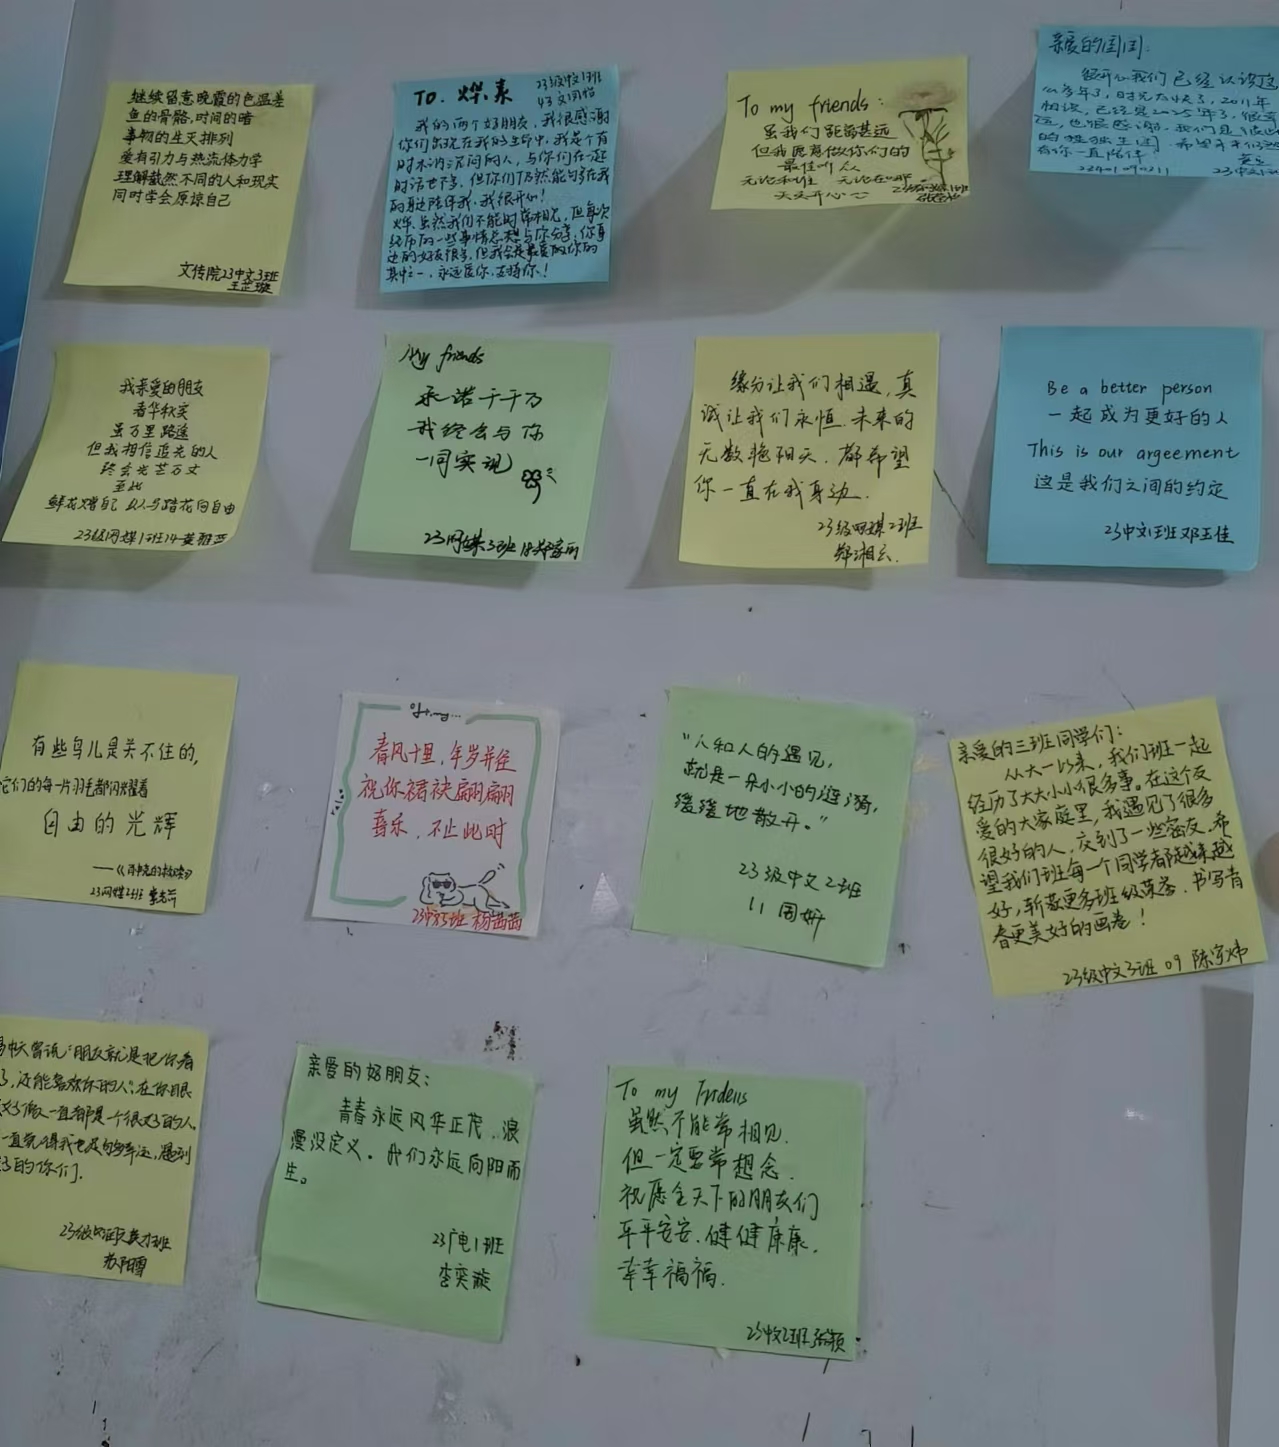 继续留意晚霞的色温差
鱼的骨骼,时间的暗
事物的生灭排列
爱有引力与热流体力学
理解截然不同的人和现实
同时学会原谅自己
文传院23中文3班
王芷璇
TO. 烨、素
23级中文1班
我的两个好朋友,我很感谢
你们出现在我的生命中,我是个有
时木讷沉闷的人,与你们在一起
时话也不多,但你们仍然能包容在我
的身边陪伴我,我很开心!
烨,虽然我们不能时常相见,但每次
经历的一些事情总想与你分享,你身
边的好友很多,但我会是最爱的你的
其中之一,永远爱你,支持你!
To my friends:
虽我们距离甚远
但我愿意做你们的
最佳听众
无论和谁 无论在哪
天天开心
亲爱的闰闰:
很开心我们已经认识这
么多年了,时光太快了,2011年
相识,已经是2025年了,很幸
运,也很感谢,我们是彼此
有你一直陪伴!
我亲爱的朋友
春华秋实
虽万里路遥
但我相信追光的人
终会光芒万丈
至此
鲜花赠自己 纵马踏花向自由
23级网媒1班14黄雅西
My friends
承诺千千万
我终会与你
一同实现
23网媒3班18郑家丽
缘分让我们相遇,真
诚让我们永恒,未来的
无数艳阳天,都希望
你一直在我身边.
23级网媒2班
郑湘云.
Be a better person
一起成为更好的人
This is our argeement
这是我们之间的约定
23中文1班邓玉佳
有些鸟儿是关不住的,
它们的每一片羽毛都闪耀着
自由的光辉
——《肖申克的救赎》
23网媒2班
春风十里,年岁并径
祝你裙袂翩翩
喜乐,不止此时
23中文5班 杨茜茜
“人和人的遇见,
就是一朵小小的涟漪,
缓缓地散开。”
23级中文2班
11 周妍
亲爱的三班同学们:
从大一以来,我们班一起
经历了大大小小很多事。在这个友
爱的大家庭里,我遇见了很多
很好的人,交到了一些密友,希
望我们班每一个同学都越来越
好,斩获更多班级荣誉,书写青
春更美好的画卷!
23级中文3班 09 陈宇炜
曾说“朋友就是把你看
了,还能喜欢你的人”,在你眼
一直都是一个很好的人,
一直觉得我也足够幸运,遇到
的你们.
苏阳雪
亲爱的好朋友:
青春永远风华正茂,浪
漫没定义。我们永远向阳而
生。
23广电1班
李奕璇
To my Fridends
虽然不能常相见,
但一定要常想念.
祝愿全天下的朋友们
平平安安,健健康康,
幸幸福福.
23中文2班张颖